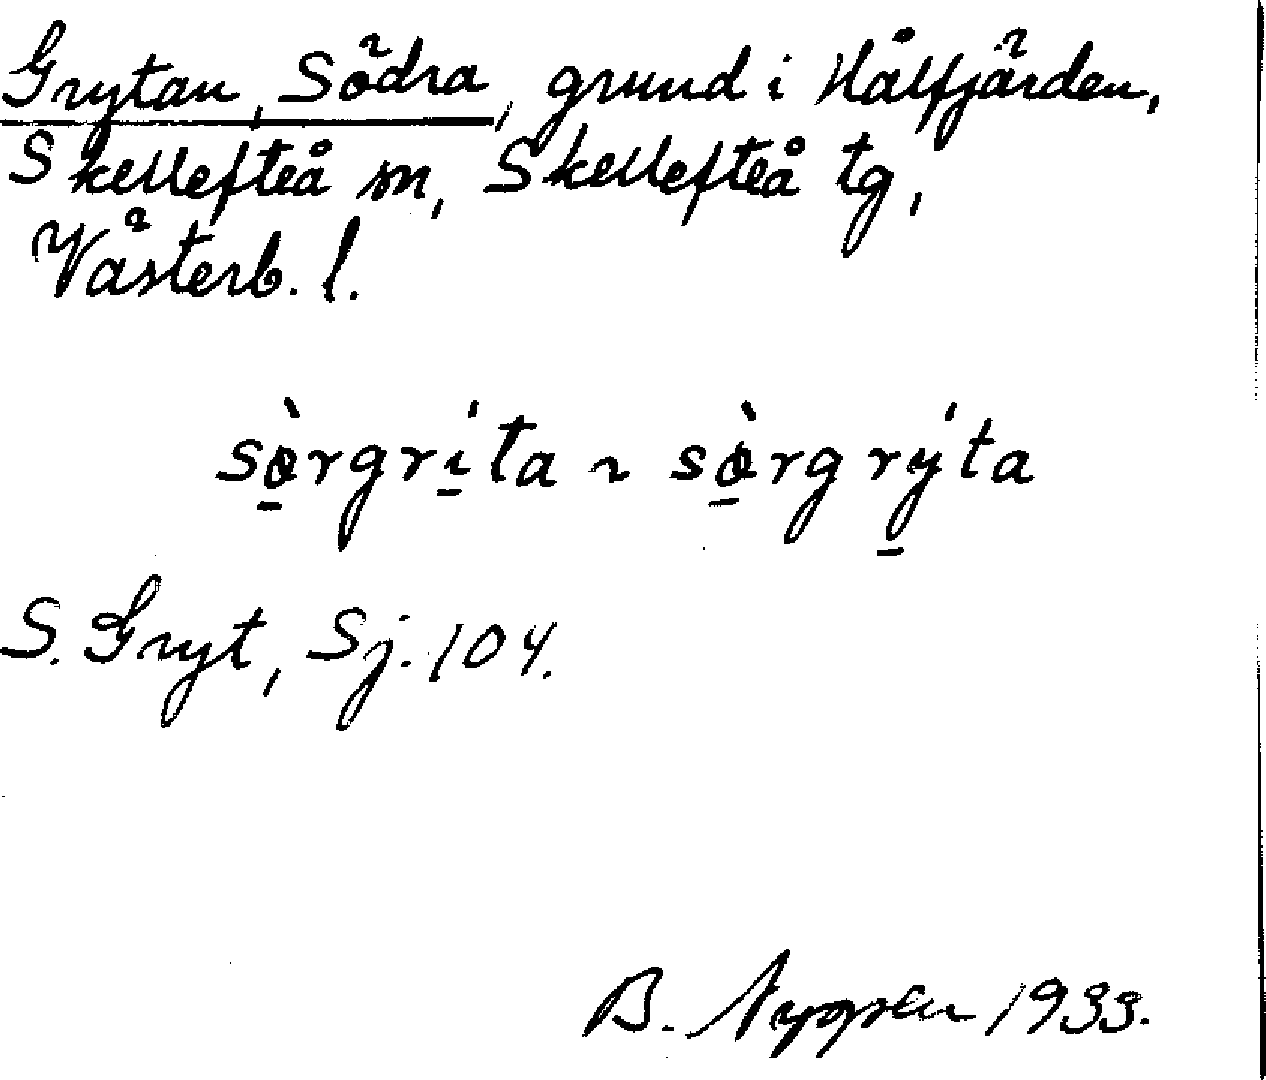 Grytan, Södra, grund i Hålfjärden,
Skellefteå sn, Skellefteå tg,
Västerb. l.
sø̀rgríta ~ sø̀rgrýta
S. Gryt, Sj. 104.
B. Nygren 1933.